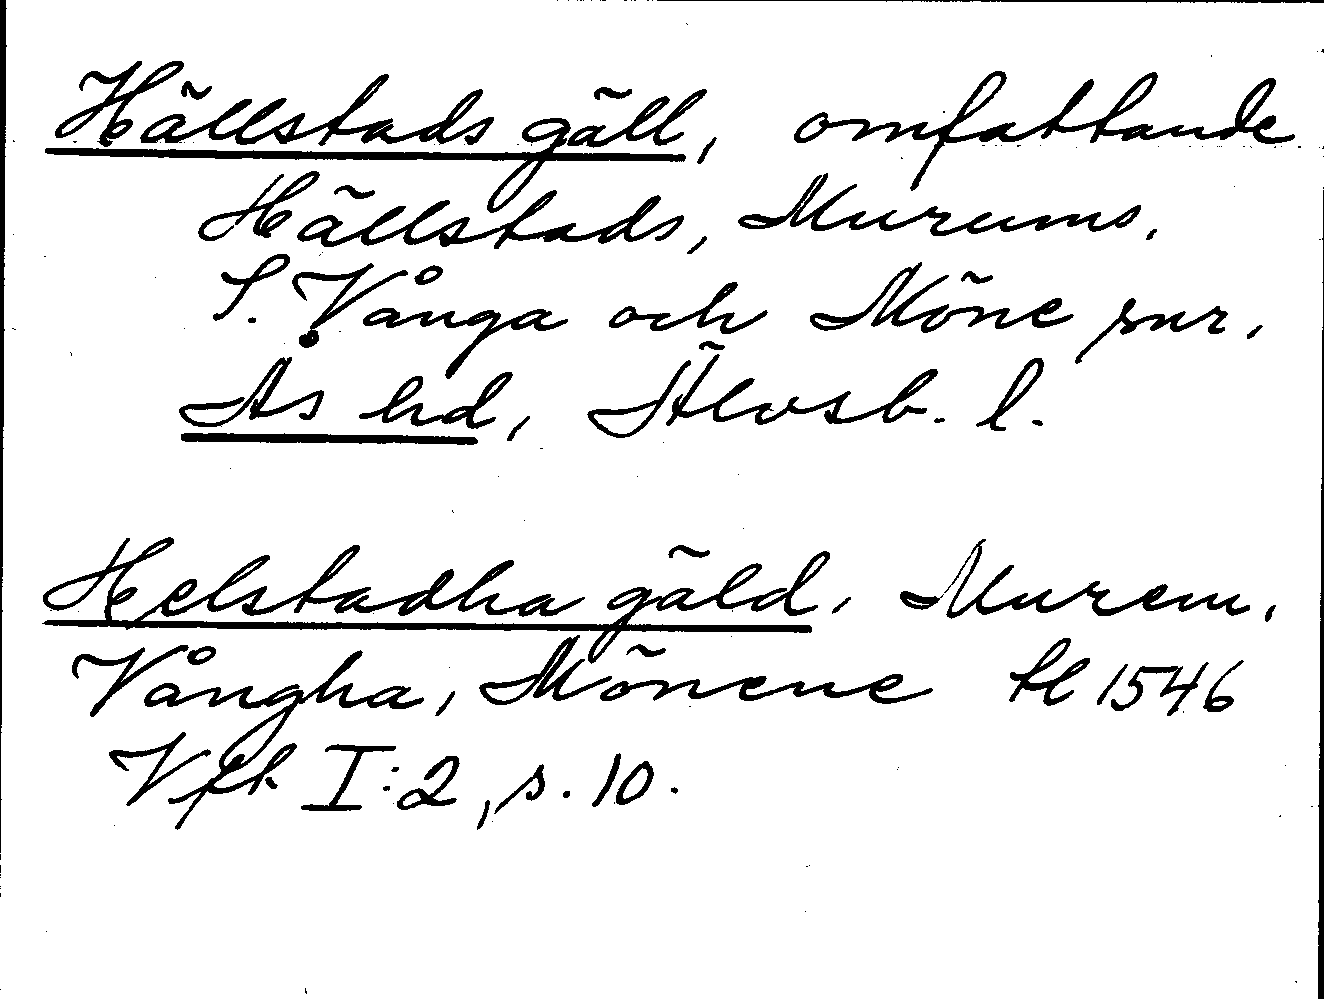 Hällstads gäll, omfattande
Hällstads, Murums,
S. Vånga och Möne snr,
Ås hd, Älvsb. l.
Helstadha gäld, Murem,
Vångha, Mönene tl 1546
Vfk I:2, s. 10.